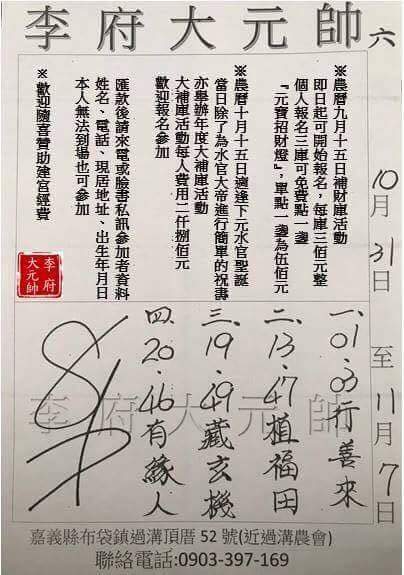 李府大元帥
六
10月31日至11月7日
※農曆九月十五日補財庫活動
即日起可開始報名，每庫三佰元整
個人報名三庫可免費點一盞
『元寶招財燈』，單點一盞為伍佰元
※農曆十月十五日適逢下元水官聖誕
當日除了為水官大帝進行簡單的祝壽
亦舉辦年度大補庫活動
大補庫活動每人費用二仟捌佰元
歡迎報名參加
匯款後請來電或臉書私訊參加者資料
姓名、電話、現居地址、出生年月日
本人無法到場也可參加
※歡迎隨喜贊助建宮經費
李府
大元帥
一、01.03行善來
二、13.47植福田
三、19.49藏玄機
四、20.46有緣人
李府大元帥
嘉義縣布袋鎮過溝頂厝52號(近過溝農會)
聯絡電話:0903-397-169